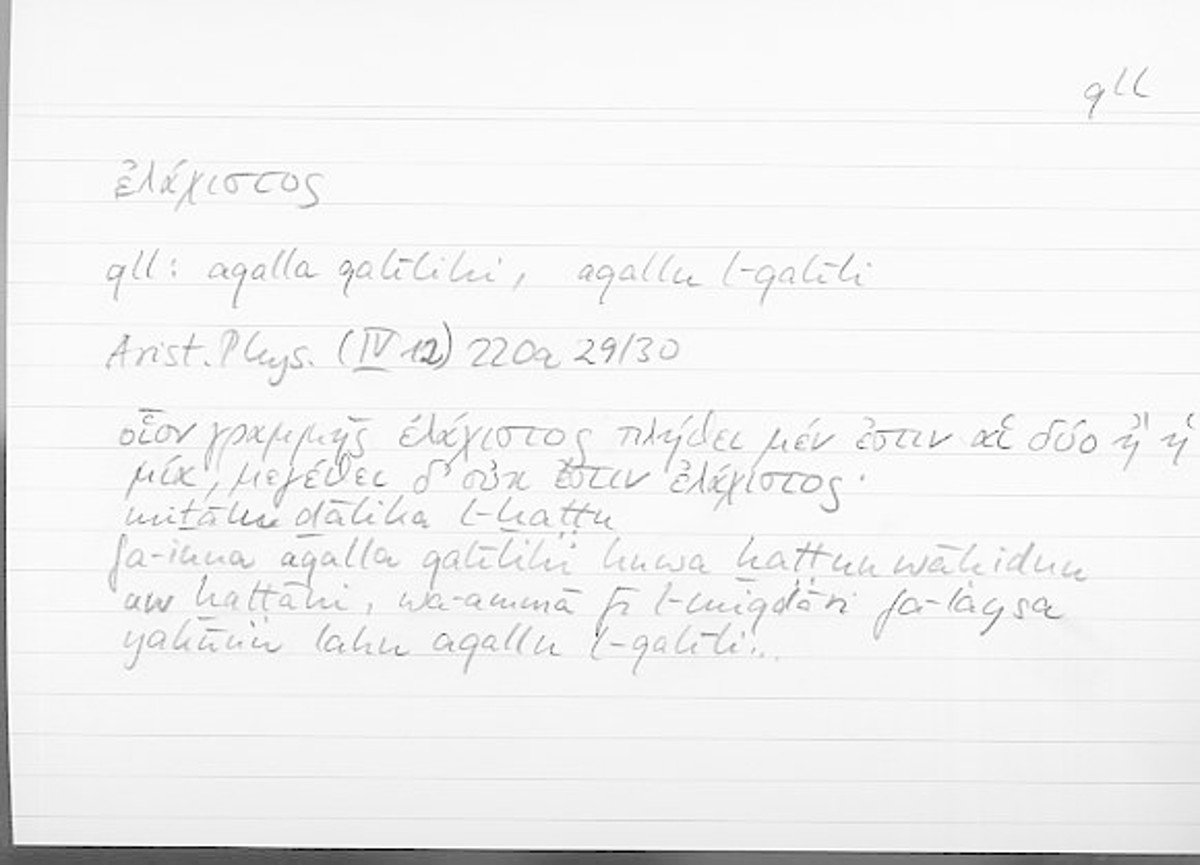 qll
ἐλάχιστος
qll: aqalla qalīlihi, aqallu l-qalīli
Arist. Phys. (IV 12) 220a 29/30
οἷον γραμμῆς ἐλάχιστος πλήθει μέν ἐστιν αἱ δύο ἢ ἡ
μία, μεγέθει δ' οὐκ ἔστιν ἐλάχιστος·
miṯālu ḏālika l-ḫaṭṭu
fa-inna aqalla qalīlihī huwa ḫaṭṭun wāḥidun
aw ḫaṭṭāni, wa-ammā fī l-miqdāri fa-laysa
yakūnu lahu aqallu l-qalīli...